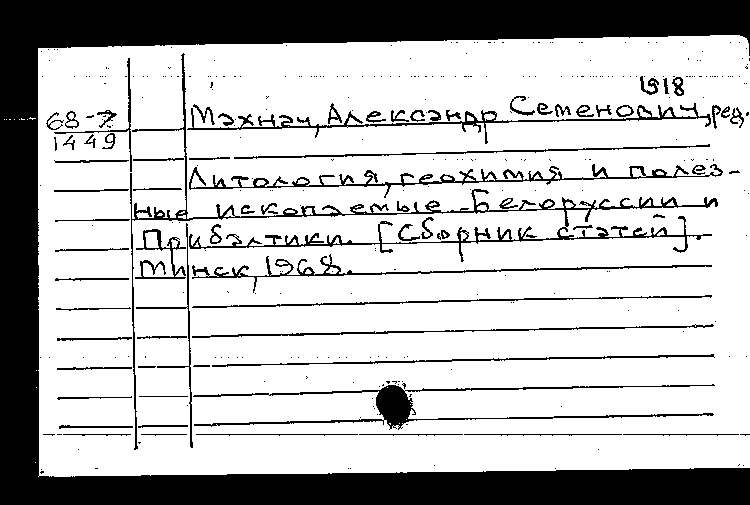 1918
68-7
1449
Махнач, Александр Семенович, ред.
Литология, геохимия и полез-
ные ископаемые Белоруссии и
Прибалтики. [Сборник статей].
Минск, 1968.